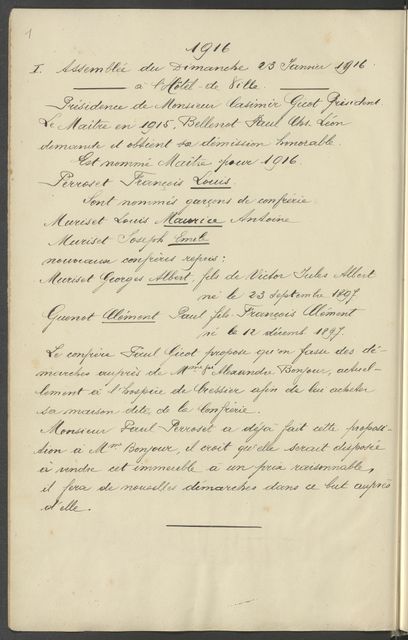 1
1916
I. Assemblée du Dimanche 23 Janvier 1916.
à l'Hôtel de Ville
Présidence de Monsieur Casimir Gicot Président.
Le Maître en 1915, Bellenot Paul Chs. Léon
demande et obtient sa démission honorable.
Est nommé Maître pour 1916.
Perroset François Louis.
Sont nommés garçons de confrérie
Muriset Louis Maurice Antoine
Muriset Joseph Emile
nouveaux confrères repris:
Muriset Georges Albert, fils de Victor Jules Albert
né le 23 septembre 1897.
Guenot Clément Paul fils François Clément
né le 12 décemb 1897.
Le confrère Gicot propose qu'on fasse des dé-
marches auprès de Alexandre Bonjour, actuel-
lement à l'hospice de Cressier afin de lui acheter
sa maison dite de la Confrérie.
Monsieur Paul Perroset a déjà fait cette proposi-
tion à Mme Bonjour, il croit qu'elle serait disposée
à vendre cet immeuble à un prix raisonnable,
il fera de nouvelles démarches dans ce but auprès
d'elle.